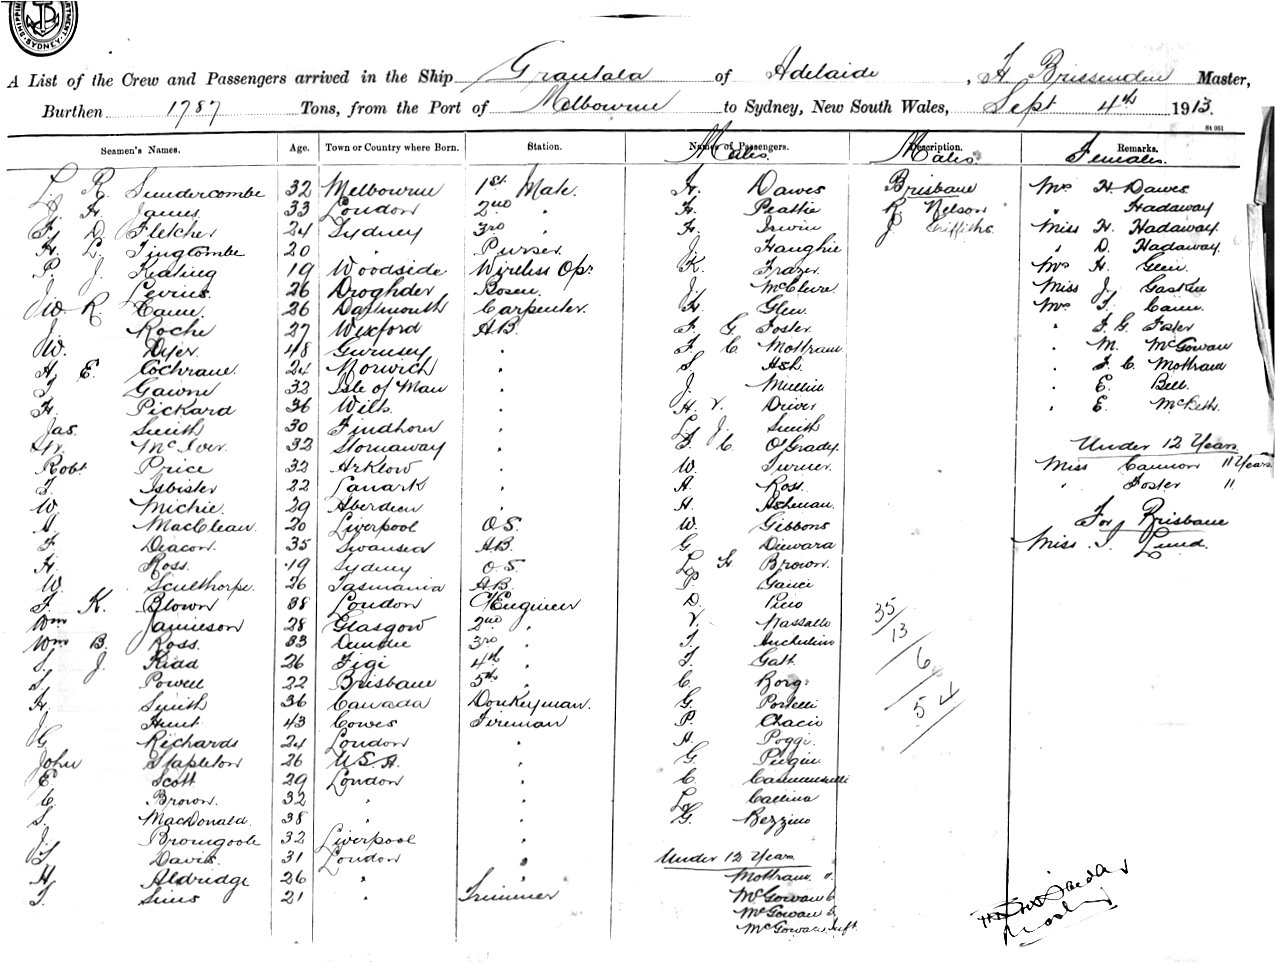 SHIPPING DEPARTMENT. SYDNEY.
A List of the Crew and Passengers arrived in the Ship Grantala of Adelaide, H Brissenden Master,
Burthen 1787 Tons, from the Port of Melbourne to Sydney, New South Wales, Sept 4th 1913.
St 961
Seamen's Names. Age. Town or Country where Born. Station. Names of Passengers. Description. Remarks.
Males. Males. Females.
L. R. Sundercombe 32 Melbourne 1st Mate H. Dawes Brisbane Mrs H Dawes
J. H. James 33 London 2nd " H. Peattie R Nelson " Hadaway
F. D. Fletcher 24 Sydney 3rd " H. Irwin J Griffiths Miss H. Hadaway
H. L. Tingcombe 20 " Purser J. Haughie " D. Hadaway
P. J. Keating 19 Woodside Wireless Opr K. Frazer Mrs H. Glen
J. Levins 26 Droghder Bosun J. McClure Miss J. Gaskin
W R. Cann 26 Dartmouth Carpenter H. Glen Mrs T. Cann
J. Roche 27 Wexford AB F. G Foster " F. G. Foster
W. Dyer 48 Gurnsey " F. C Mottram " M. McGowan
H. E. Cochrane 24 Norwich " S Ash " F. C. Mottram
T. Gawne 32 Isle of Man " J. Mullin " E. Bell
H. Pickard 36 Wilts " H. V. Driver " E. McBeth
Jas. Smith 30 Findhorn " L. J. Smith
McIver 32 Stornaway " T. C O'Grady Under 12 Years
Robt Price 32 Arklow " W. Turner Miss Cannon 11 Years
T. Isbister 22 Lanark " A. Ross " Foster 11
W. Michie 29 Aberdeen " H. Asheman
A. MacClean 20 Liverpool O.S. W. Gibbons For Brisbane
F. Deacon 35 Swansea AB. G. Duwara Miss T. Lund
H. Ross 19 Sydney O.S. L H Brown
W. Sculthorpe 26 Tasmania AB. P. Gauci
F. K. Blown 38 London C/Engineer D. Pico 35
Wm Jamieson 28 Glasgow 2nd " V. Nassallo 13
Wm B. Ross 33 Dundee 3rd " T.
S. J. Kidd 26 Figi 4th " T. Gatt 6
S. Powell 22 Brisbane 5th " C Borg
H. Smith 36 Canada Donkeyman. G. Portelli 54
J. Hunt 43 Cowes Fireman P. Chacio
G. Richards 24 London " A. Poggi
John Stapleton 26 U.S.A. " G. Pugin
E Scott 29 London " C.
C. Brown. 32 " " L. Callina
S. MacDonald. 38 " " G. Bezzino
J. Bromgoole 32 Liverpool "
S. Davis 31 London " Under 12 Years
H. Aldridge 26 " " Mottram 11
T. Sims 21 " Trimmer McGowan 6
McGowan 5
McGowan Inft